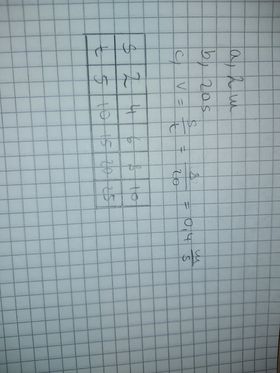 a, 2 m
b, 20 s
c, v = s/t = 8/20 = 0,4 m/s
s 2 4 6 8 10
t 5 10 15 20 25